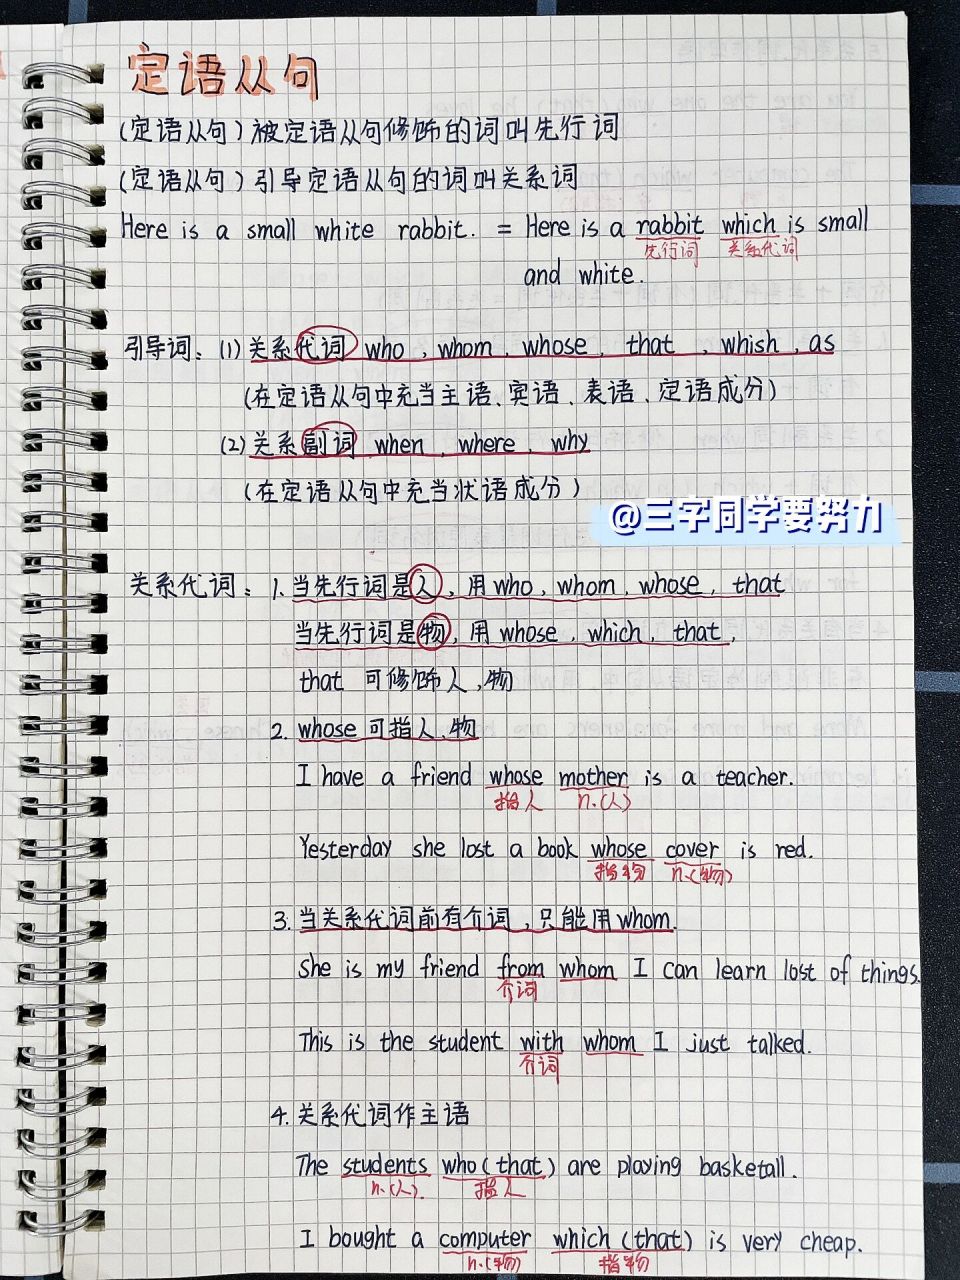 定语从句
(定语从句)被定语从句修饰的词叫先行词
(定语从句)引导定语从句的词叫关系词
Here is a small white rabbit. = Here is a rabbit which is small
先行词 关系代词
and white.
引导词: (1) 关系代词 who, whom, whose, that, whish, as
(在定语从句中充当主语、宾语、表语、定语成分)
(2) 关系副词 when, where, why
(在定语从句中充当状语成分)
@三字同学要努力
关系代词: 1. 当先行词是人, 用 who, whom, whose, that
当先行词是物, 用 whose, which, that,
that 可修饰人、物
2. whose 可指人、物
I have a friend whose mother is a teacher.
指人 n.(人)
Yesterday she lost a book whose cover is red.
指物 n.(物)
3. 当关系代词前有介词, 只能用 whom.
She is my friend from whom I can learn lost of things.
介词
This is the student with whom I just talked.
介词
4. 关系代词作主语
The students who (that) are playing basketall.
n.(人). 指人
I bought a computer which (that) is very cheap.
n.(物) 指物